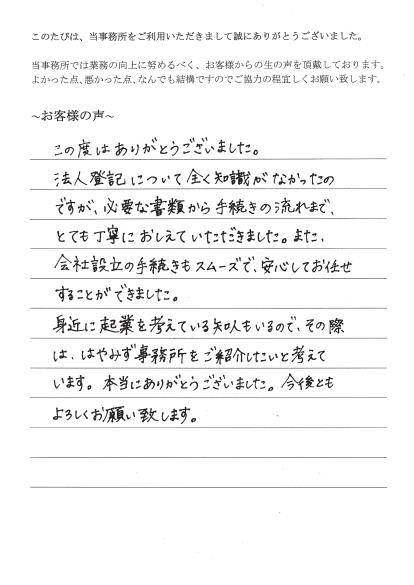 このたびは、当事務所をご利用いただきまして誠にありがとうございました。
当事務所では業務の向上に努めるべく、お客様からの生の声を頂戴しております。
よかった点、悪かった点、なんでも結構ですのでご協力の程宜しくお願い致します。
~お客様の声~
この度はありがとうございました。
法人登記について全く知識がなかったの
ですが、必要な書類から手続きの流れまで、
とても丁寧におしえていただきました。また、
会社設立の手続きもスムーズで、安心してお任せ
することができました。
身近に起業を考えている知人もいるので、その際
は、はやみず事務所をご紹介したいと考えて
います。本当にありがとうございました。今後とも
よろしくお願い致します。